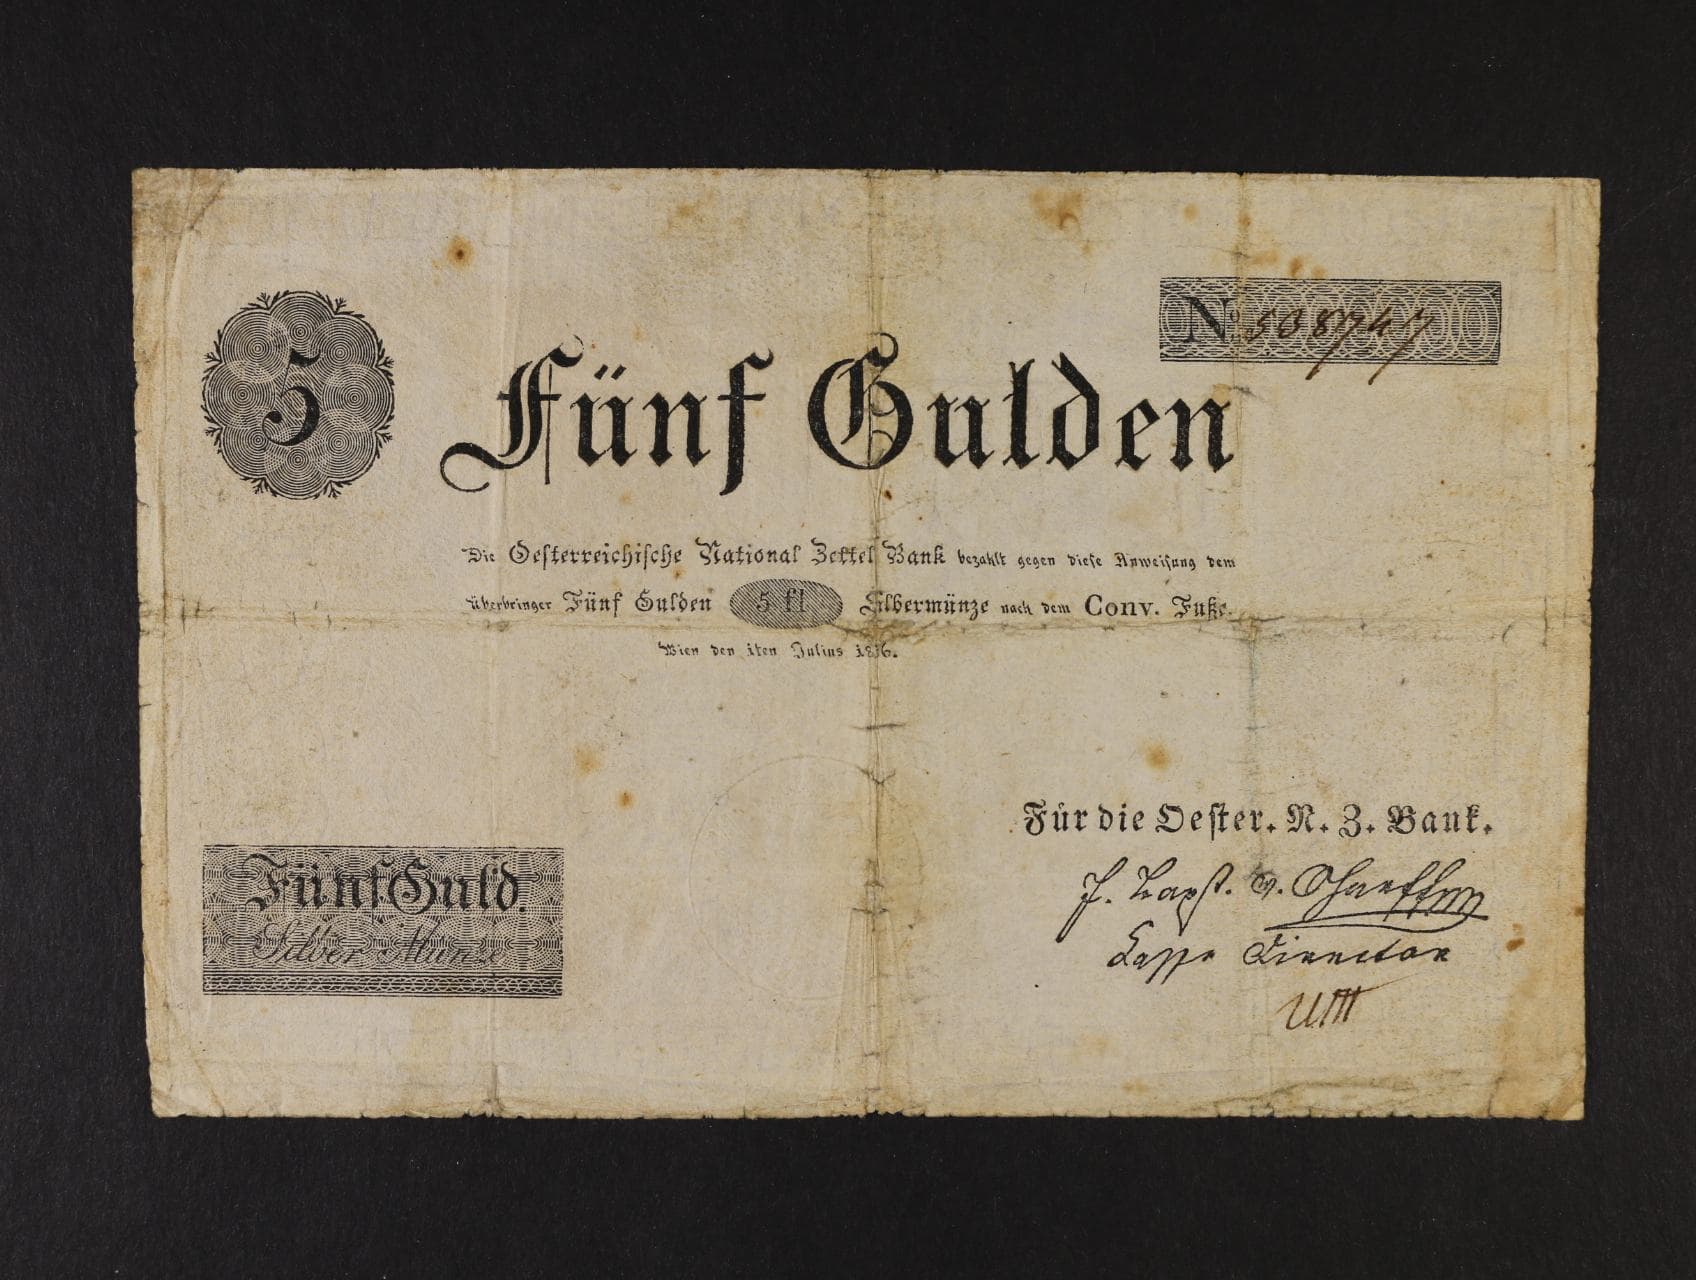 5
Nº 508747
Fünf Gulden
Die Oesterreichische National Zettel Bank bezahlt gegen diese Anweisung dem
überbringer Fünf Gulden 5 fl Silbermünze nach dem Conv. Fuße.
Wien den 1ten Julius 1816.
Für die Oester. N. Z. Bank.
J. Bapst. v.
Cassa Director
Fünf Guld.
Silber Münze